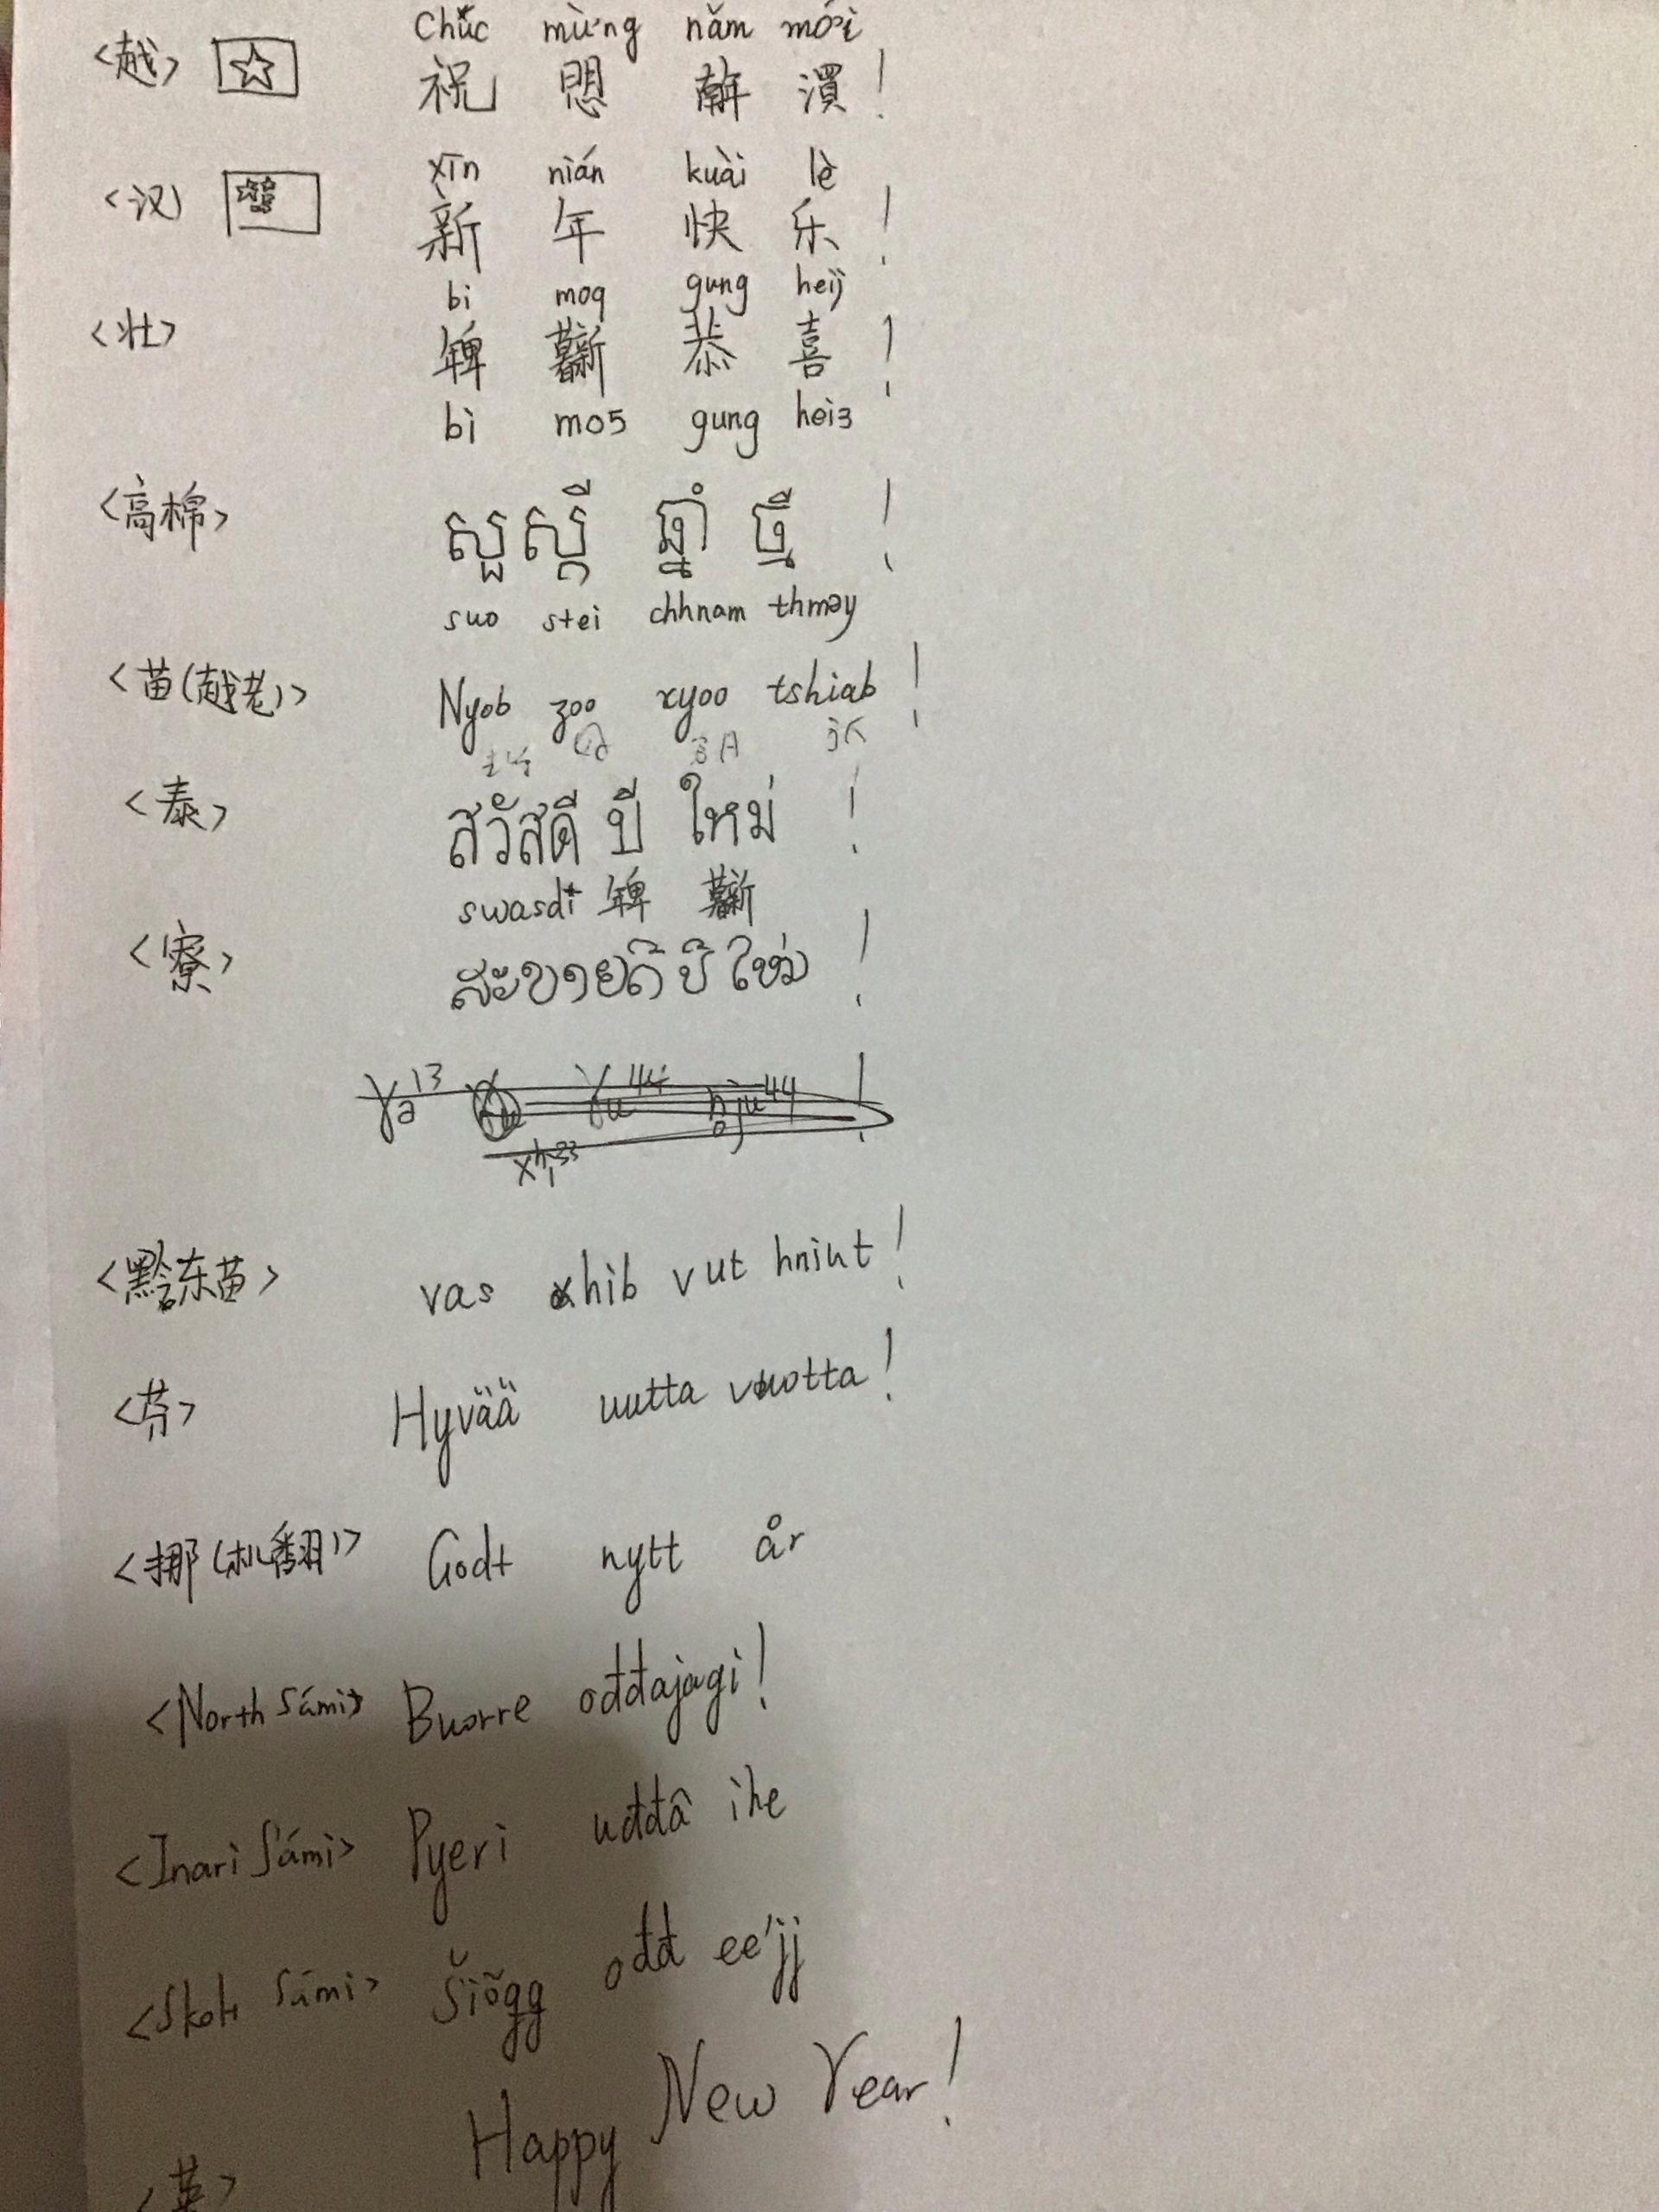 <越> Chúc mừng năm mới
祝 𢜠 𢆥 !
<汉> xīn nián kuài lè
新 年 快 乐 !
bi moq gung heij
<壮> 恭 喜 !
bi mo5 gung hei3
<高棉> សួស្តី ឆ្នាំ ថ្មី !
suo stei chhnam thmey
<苗(越老)> Nyob zoo xyoo tshiab !
<泰> สวัสดี ปี ใหม่ !
swasdi
<寮> ສະບາຍດີ ປີ ໃໝ່ !
<黔东苗> vas xhib vut hniut !
<芬> Hyvää uutta vuotta !
<挪(机翻)> Godt nytt år
<North Sámi> Buorre ođđajagi !
<Inari Sámi> Pyeri uđđâ ihe
<Skolt Sámi> Šiõgg ođđ ee'jj
Happy New Year !
<英>